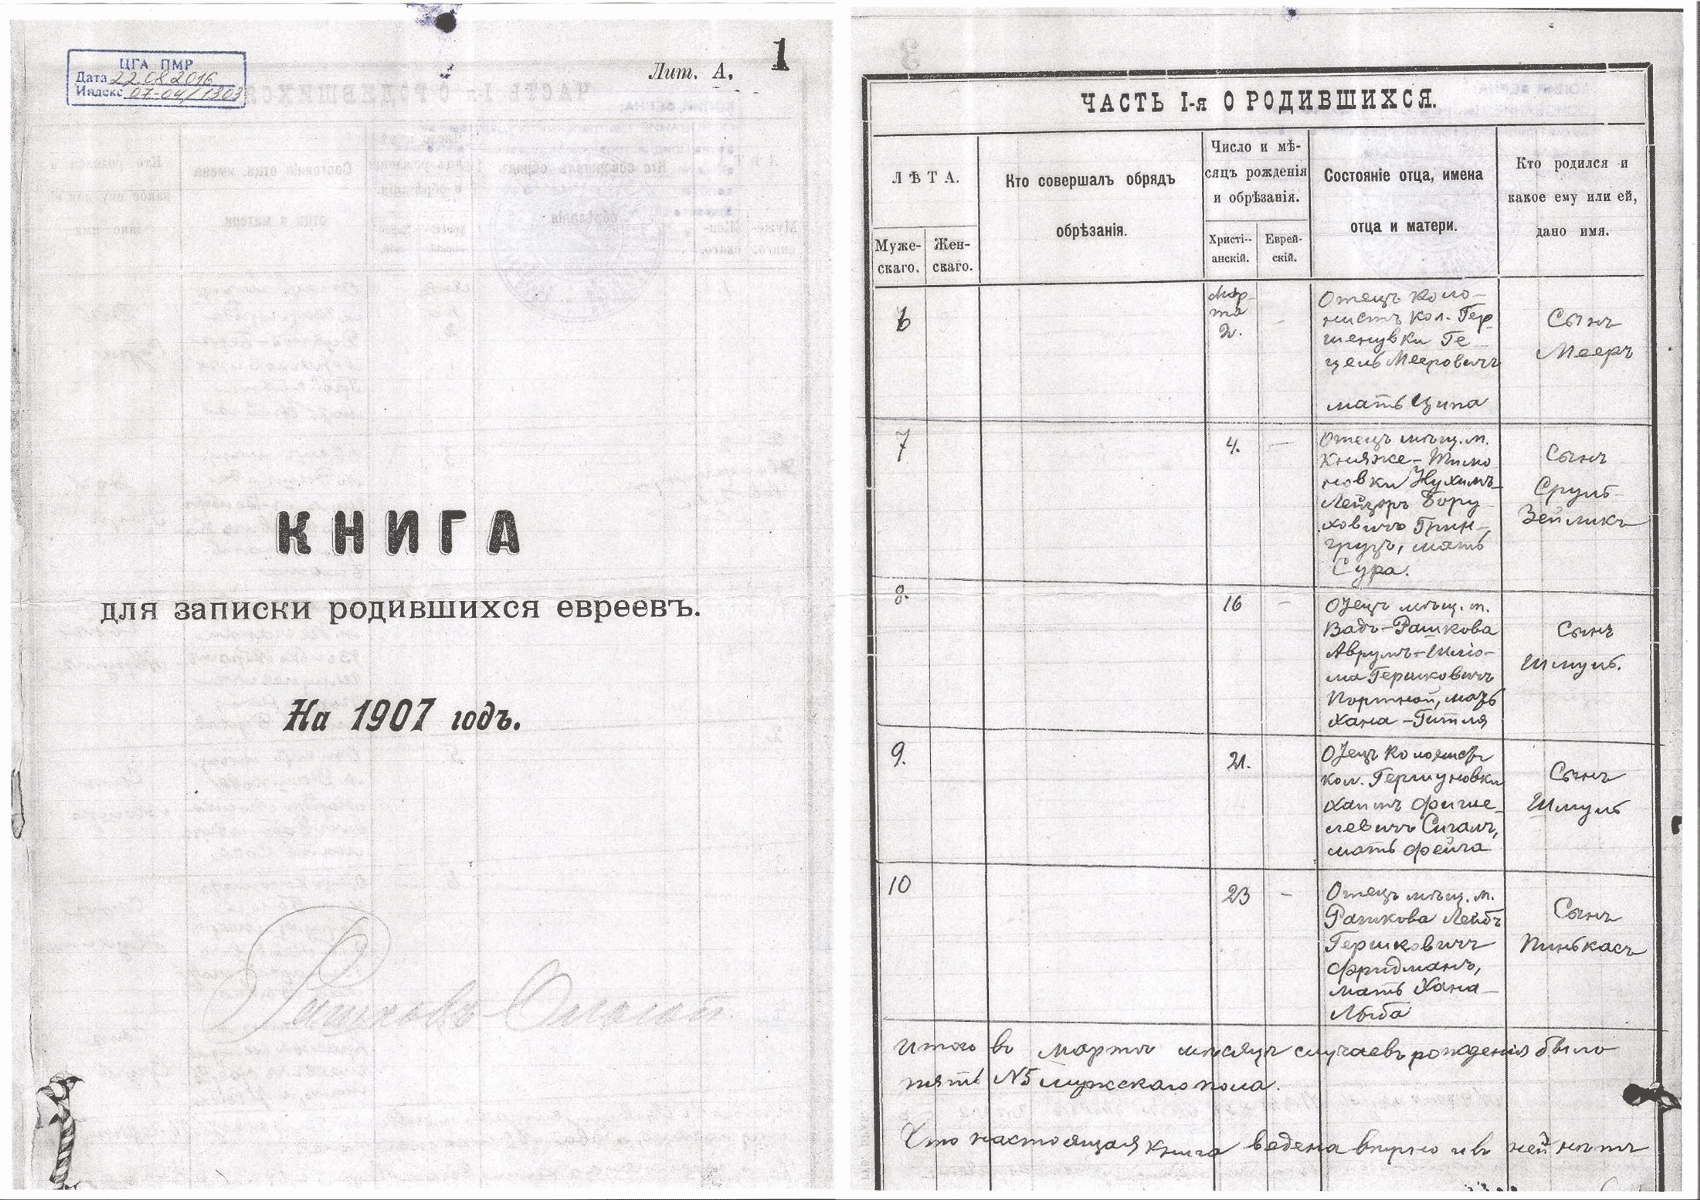 ЦГА ПМР
Дата 22.08.2016
Индекс 07-04/1303
Лит. А.
1
КНИГА
для записки родившихся евреевъ.
На 1907 годъ.
ЧАСТЬ I-я О РОДИВШИХСЯ.
ЛѢТА.
Муже-
скаго.
Жен-
скаго.
Кто совершалъ обрядъ
обрѣзанія.
Число и мѣ-
сяцъ рожденія
и обрѣзанія.
Христі-
анскій.
Еврей-
скій.
Состояніе отца, имена
отца и матери.
Кто родился и
какое ему или ей,
дано имя.
6
Мар-
та
2.
Отецъ коло-
нистъ кол. Гер-
шеновки Ге-
цель Мееровичъ
мать Ципа
Сынъ
Мееръ
7
4.
Отецъ мѣщ. м.
Княже-Тимо
новки Нухимъ-
Лейзоръ Бору
ховичъ Грин-
груzъ, мать
Сура.
Сынъ
Сруль-
Зейликъ
8.
16
Отецъ мѣщ. м.
Вадъ-Рашкова
Аврумъ-Шлё-
ма Гершковичъ
Портной, мать
Хана-Гитля
Сынъ
Шмуль.
9.
21.
Отецъ колонистъ
кол. Гершуновки
Хаимъ Фише-
левичъ Сигалъ,
мать Фейга
Сынъ
Шмуль
10
23
Отецъ мѣщ. м.
Рашкова Лейбъ
Гершковичъ
Фридманъ,
мать Хана-
Лыба
Сынъ
Пинькасъ
Итого въ мартѣ мѣсяцѣ случаевъ рожденія было
пять №5 мужскаго пола.
Что настоящая книга ведена вѣрно и въ ней нѣтъ